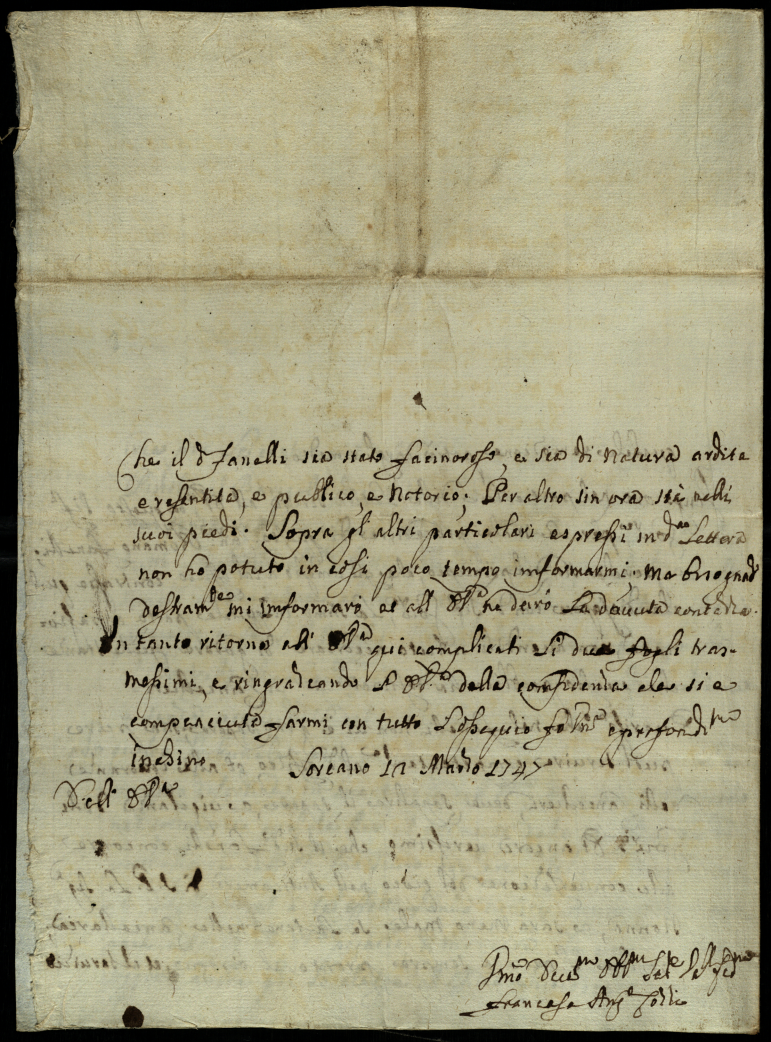 Che il d Zanelli sia stato facinoroso, e sia di natura ardita
e resentita, e publico, e notorio; Per altro sin ora sta nelli
suoi piedi. Sopra gl'altri particolari espressi in d.ta Lettera
non ho potuto in così poco tempo informarmi, ma
mi informarò et all' ne darò La dovuta contezza.
In tanto ritorno all' qui complicati Li due fogli tras-
messimi, e ringraziando della confidenza che si è
compiaciuta farmi con tutto L'ossequio
inchino Soreano 12 Marzo 1747
Dell'
Francesco Ang.o